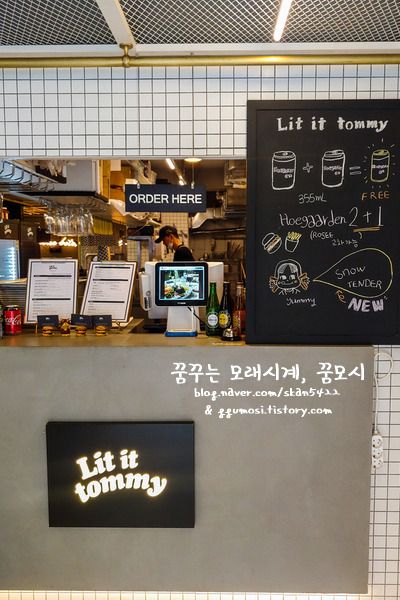 Lit it tommy
+
=
355mL
FREE
Hoegaarden 2+1
(ROSEE
Snow
TENDER
Yummy
NEW
ORDER HERE
꿈꾸는 모래시계, 꿈모시
blog.naver.com/skan5422
& ggumosi.tistory.com
Lit it
tommy